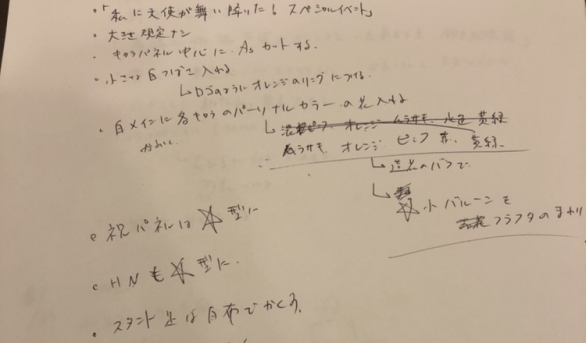 ・「私に天使が舞い降りた！スペシャルイベント」
・大きさ規定ナシ
・キャラパネル中心に、A3 カットする。
・小さな白つばさ入れる
↳DSのようにオレンジのリングにつける。
・白メインに各キャラのパーソナルカラーの花入れる
かわいく
オレンジ ムラサキ 黄緑
ムラサキ オレンジ ピンク 赤 黄緑
↳造花のバラで
↳
☆小バルーンを
フラスタのまわり
・祝パネルは☆型に
・HNも☆型に.
・スタンド足は白布でかくす。